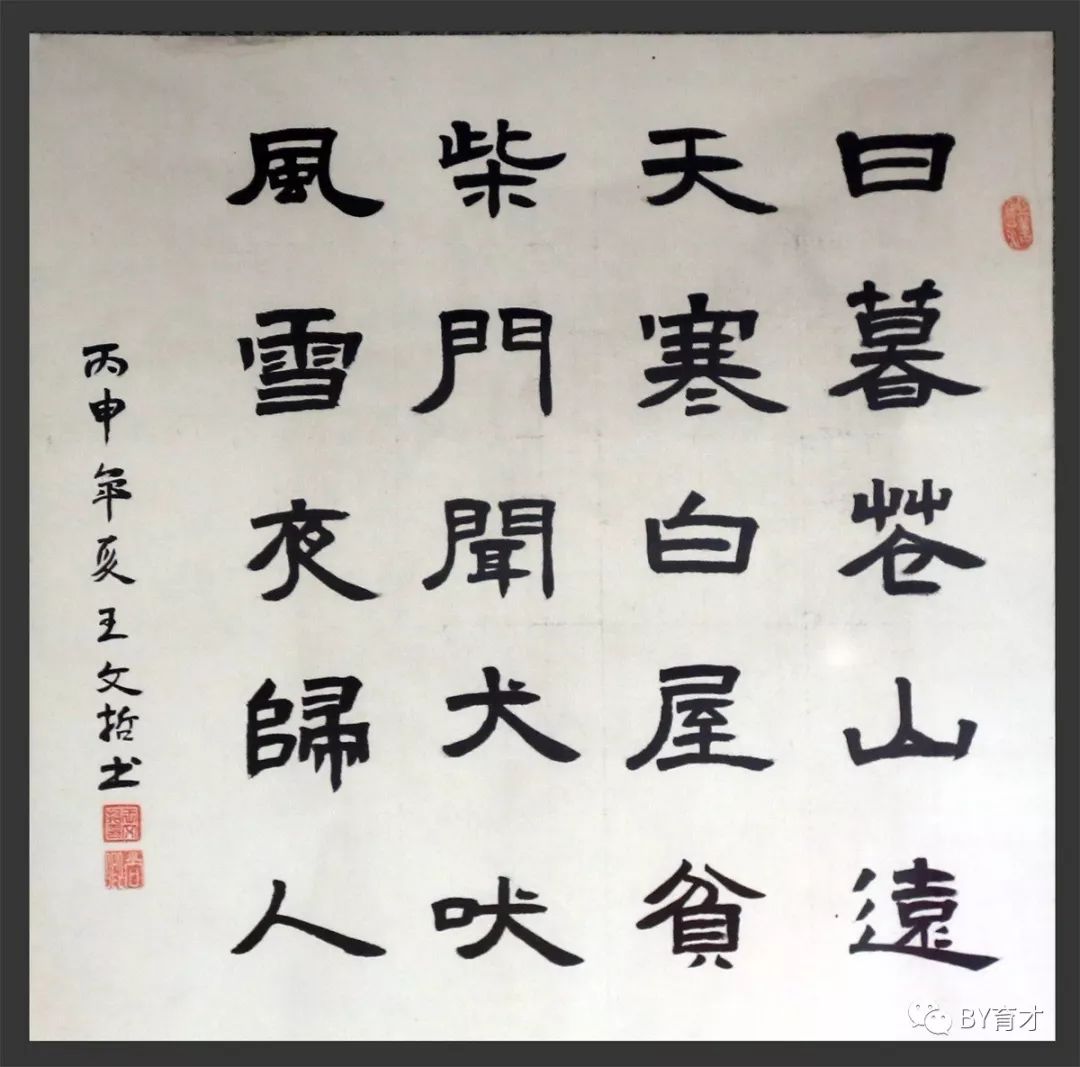 日暮苍山遠
天寒白屋貧
柴門聞犬吠
風雪夜歸人
丙申年夏王文哲书
BY育才